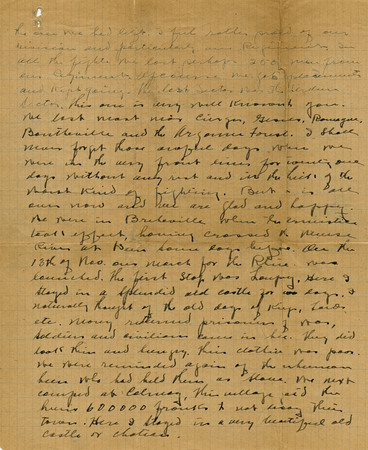 the men we had lost. I feel rather proud of our
division and particularly our Regiment. In
all the fights we lost perhaps 200 men from
our Regiment of course we got replacements
and kept going. The last Sector was the Verdun
Sector, this one is very well known to you.
We lost most near Cierges, Gesnes,
Bantheville and the Argonne Forest. I shall
never forget those awful days when we
were in the very front lines for twenty one
days without any rest and in the hell of the
worst kind of fighting. But it is all
over now and we are glad and happy.
We were in when the armistice
took effect, having crossed the Meuse
River at Dun some days before. On the
17th of Nov. our march for the Rhine was
launched. The first stop was Here I
stayed in a splendid old castle for days. I
naturally thought of the old days of Kings, Lords
etc. Many returned prisoners of war,
soldiers and civilians came in here. They did
look thin and hungry. Their clothes was poor.
We were reminded again of the inhuman
been who had held them as slaves. We next
camped at this village paid the
huns 600000 francs to not destroy their
town. Here I stayed in a very beautiful old
castle or chateau.